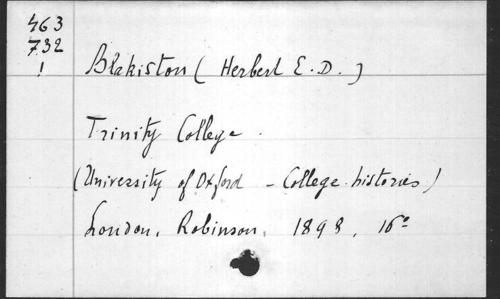 463
732
!
Blakiston ( Herbert E. D. )
Trinity College .
(University of Oxford - College histories)
London, Robinson, 1898, 16°